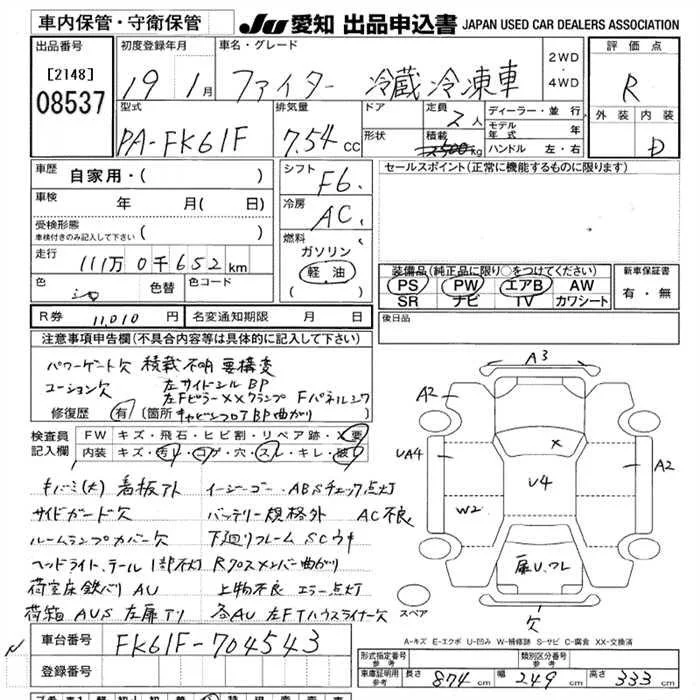 車内保管・守衛保管 JU 愛知 出品申込書 JAPAN USED CAR DEALERS ASSOCIATION
出品番号 初度登録年月 車名・グレード 2WD・4WD 評価点
[2148] 08537 19 1月 ファイター 冷蔵冷凍車 R
型式 排気量 ドア 定員 2人 ディーラー・並行 外装 内装
PA-FK61F 7.54 cc 形状 積載 2500kg モデル年式 年 D
ハンドル 左・右
車歴 自家用・( ) シフト F6. セールスポイント(正常に機能するものに限ります)
車検 年 月(日) 冷房 AC.
受検形態
車検付きのみ記入して下さい ( ) 燃料 ガソリン
走行 111万 0千652km 軽油 装備品(純正品に限り○をつけてください) 新車保証書
色 シロ 色替 色コード ( ) PS PW エアB AW 有・無
SR ナビ TV カワシート
R券 11,010円 名変通知期限 月 日 後日品
注意事項申告欄(不具合内容等は具体的に記入して下さい)
パワーゲート欠 積載不明 要構変
コーション欠 左サイドシルBP
左Fピラー××クランプ Fパネルシワ
修復歴 有 [箇所 キャビンフロアBP曲がり
検査員記入欄 FW キズ・飛石・ヒビ割・リペア跡・X要
内装 キズ・汚れ・コゲ・穴・スレ・キレ・破れ
キバミ(大) 看板アト イージーゴー・ABSチェック点灯
サイドガード欠 バッテリー規格外 AC不良
ルームランプカバー欠 下廻りフレームSCウキ
ヘッドライト、テール1部不灯 Rクロスメンバー曲がり
荷室床鉄バリ AU 上物不良 エラー点灯
荷箱 AUS 左扉Tリ 各AU 左FTハウスライナー欠
A3
A2
UA4 X A2
U4
W2
扉U.ワレ
スペア 欠
A-キズ E-エクボ U-凹み W-補修跡 S-サビ C-腐食 XX-交換済
車台番号 FK61F-704543
登録番号
形式指定番号 参考 類別区分番号 参考
車庫証明用 参考 長さ 874cm 幅 249cm 高さ 333cm